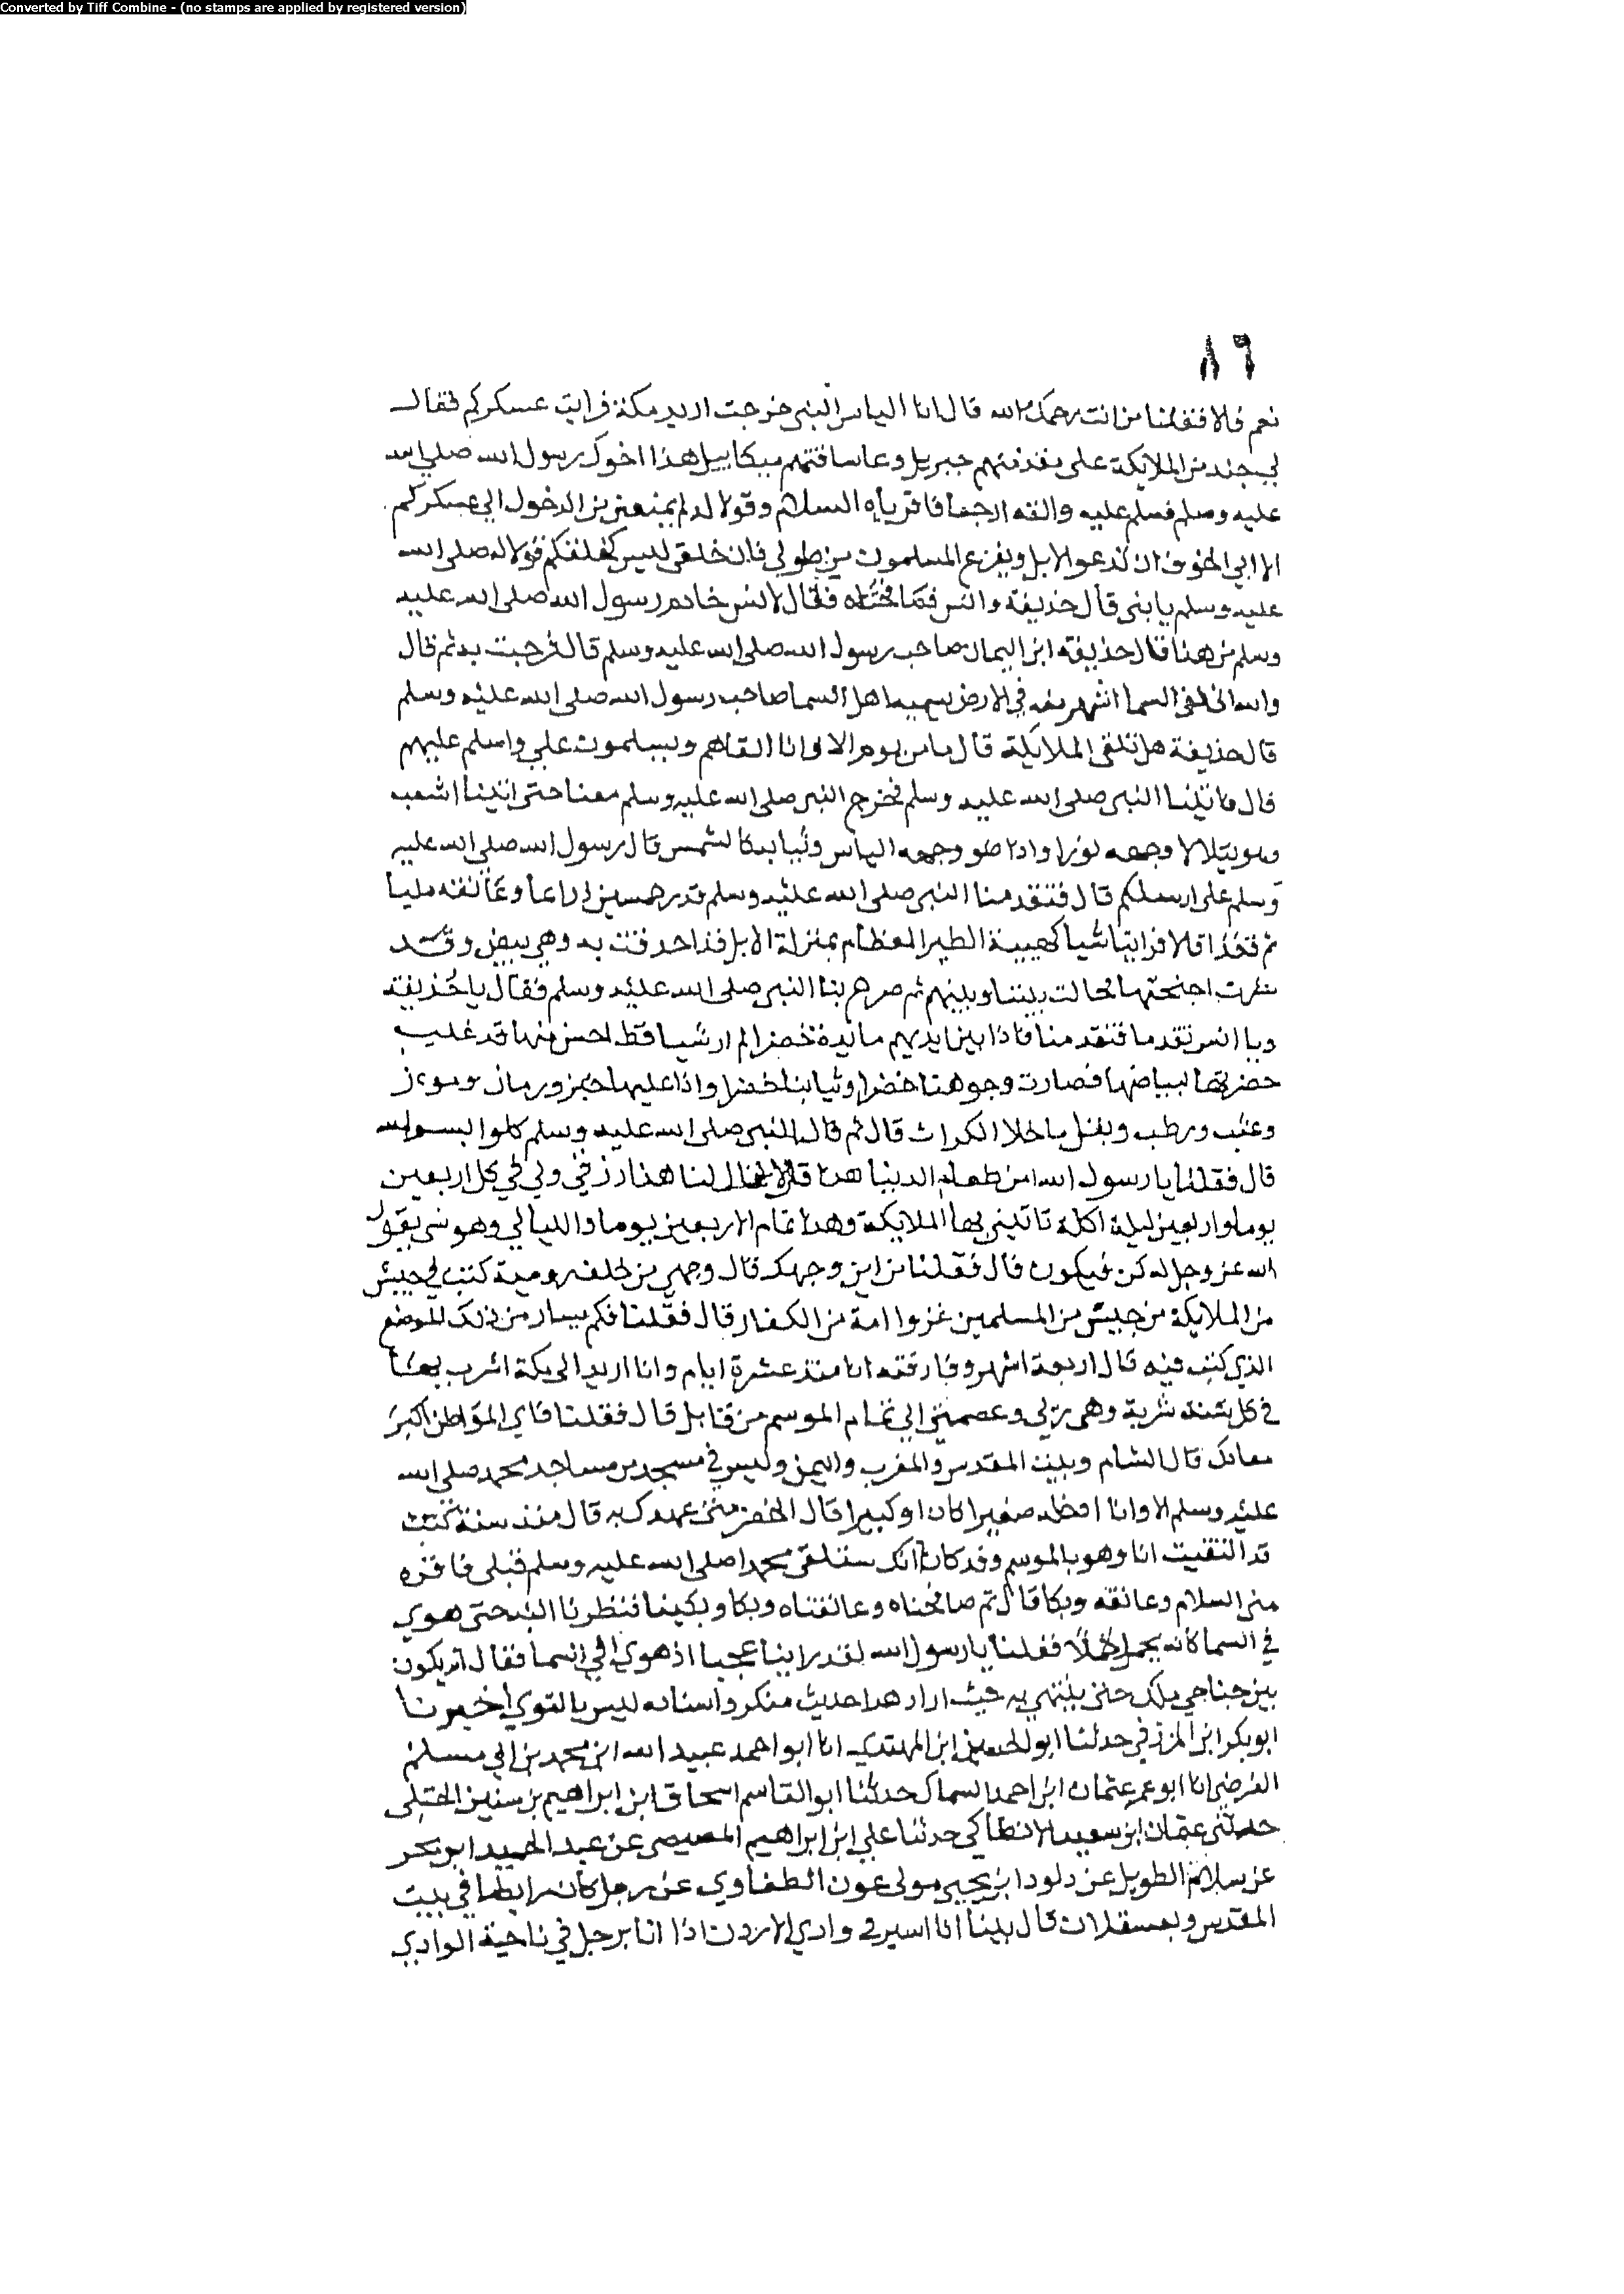 Converted by Tiff Combine - (no stamps are applied by registered version)
٨٦
نعم قالا فقلنا من انت رحمك الله قال انا الياس النبي خرجت اريد مكة فرايت عسكركم فقال
لي جند من الملايكة على مقدمتهم جبريل وعا ساقتهم ميكاييل هذا اخوك رسول الله صلي الله
عليه وسلم فسلم عليه والقه ارجعا فاقرياه السلام وقولا له لم يمنعني من الدخول الي عسكركم
الا اني اتخوف ان تذعر الابل ويفزع المسلمون من طولي فان خلقي ليس كخلقكم قولا له صلي الله
عليه وسلم ياتني قال حذيفة وانس فصافحناه فقال لانس خادم رسول الله صلي الله عليه
وسلم من هذا قال حذيفة ابن اليمان صاحب رسول الله صلي الله عليه وسلم قال فرحبت به ثم قال
والله انه لفي السما اشهر منه في الارض يسميه اهل السما صاحب رسول الله صلي الله عليه وسلم
قال حذيفة هل تلقى الملايكة قال ما من يوم الا وانا القاهم ويسلمون علي واسلم عليهم
قال فاتينا النبي صلي الله عليه وسلم فخرج النبي صلي الله عليه وسلم معنا حتى اتينا الشعب
وهو يتلالا وجهه نورا واذا ضو وجهه الياس وثيابه كالشمس قال رسول الله صلي الله عليه
وسلم على ارسلكم قال فتقدمنا النبي صلي الله عليه وسلم قدر خمسين ذراعا وعانقه مليا
ثم قعدا قالا فراينا شيا كهيية الطير العظام بمنزلة الابل قد احدقت به وهي بيض وقد
نشرت اجنحتها فحالت بيننا وبينهم ثم صرح بنا النبي صلي الله عليه وسلم فقال يا حذيفة
ويا انس تقدما فتقدمنا فاذا بين ايديهم مايدة خضرا لم ار شيا قط احسن منها قد غلب
خضرتها لبياضها فصارت وجوهنا خضرا وثيابنا خضرا واذا عليها خبز ورمان وموز
وعنب ورطب وبقل ما خلا الكراث قال ثم قال النبي صلي الله عليه وسلم كلوا بسم الله
قال فقلنا يا رسول الله امن طعام الدنيا هذا قال لا قال لنا هذا رزقي ولي في كل اربعين
يوما واربعين ليلة اكلة تاتيني بها الملايكة وهذا تمام الاربعين يوما والليالي وهو شي يقول
الله عز وجل له كن فيكون قال فقلنا من اين وجهك قال وجهي من خلف رومية كنت في جيش
من الملايكة مع جيش من المسلمين غزوا امة من الكفار قال فقلنا فكم يسار من ذلك الموضع
الذي كنت فيه قال اربعة اشهر وفارقته انا منذ عشرة ايام وانا اريد الى مكة اشرب بها
في كل سنة شربة وهي ريي وعصمتي الي تمام الموسم من قابل قال فقلنا فاي المواطن اكبر
معادك قال الشام وبيت المقدس والمغرب واليمن وليس في مسجد من مساجد محمد صلي الله
عليه وسلم الا وانا ادخله صغيرا كان او كبيرا قال الخضر متى عهدك به قال منذ سنة كنت
قد التقيت انا وهو بالموسم وقد كان انك ستلقى محمدا صلي الله عليه وسلم قبلي فاقره
مني السلام وعانقه وبكا قال ثم صافحناه وعانقناه وبكا وبكينا فنظرنا اليه حتى هوي
في السما كانه يحمل حملا فقلنا يا رسول الله لقد راينا عجبا اذ هوي الي السما فقال انه يكون
بين جناحي ملك حتى ينتهي به حيث اراد هذا حديث منكر واسناده ليس بالقوي اخبرنا
ابو بكر ابن المزرفي حدثنا ابو الحسين ابن المهتدي انا ابو احمد عبيد الله ابن محمد بن ابي مسلم
الفرضي انا ابو عمر عثمان ابن احمد السماك حدثنا ابو القاسم اسحاق ابن ابراهيم بن سنين الختلي
حدثني عثمان ابن سعيد الانطاكي حدثنا علي ابن ابراهيم المصيصي عن عبد الحميد ابن بحر
عن سلام الطويل عن داود ابن يحيى مولى عون الطفاوي عن رجل كان مرابطا في بيت
المقدس وبعسقلان قال بينا انا اسير في وادي الاردن اذا انا برجل في ناحية الوادي